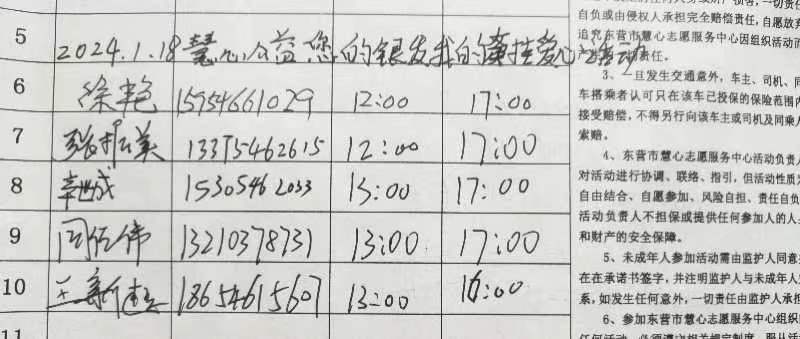 5 2024.1.18慧心公益 您的银发我的牵挂爱心活动
6 徐艳 15954661029 12:00 17:00
7 张振英 13375462615 12:00 17:00
8 辛世成 15305462033 13:00 17:00
9 闫伍伟 13210378731 13:00 17:00
10 王新 18654615607 13:00 16:00
11
自负或由侵权人承担完全赔偿责任,自愿放弃
追究东营市慧心志愿服务中心因组织活动而
责任。
3、一旦发生交通意外,车主、司机、同
车搭乘者认可只在该车已投保的保险范围内
接受赔偿,不得另行向该车主或司机及同乘人
索赔。
4、东营市慧心志愿服务中心活动负责人
对活动进行协调、联络、指引,但活动性质为
自由结合、自愿参加、风险自担、责任自负
活动负责人不担保或提供任何参加人的人身
和财产的安全保障。
5、未成年人参加活动需由监护人同意并
在在承诺书签字,并注明监护人与未成年人关
系,如发生任何意外,一切责任由监护人承担
6、参加东营市慧心志愿服务中心组织的